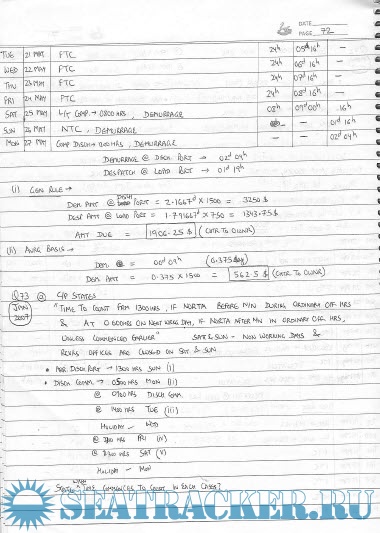 DATE
PAGE 72
TUE 21 MAY FTC 24h 05d 16h —
WED 22 MAY FTC 24h 06d 16h —
THU 23 MAY FTC 24h 07d 16h —
FRI 24 MAY FTC 24h 08d 16h —
SAT 25 MAY L/T COMP → 0800 HRS, DEMURRAGE 08h 09d 00h 16h
SUN 26 MAY NTC, DEMURRAGE — 01d 16h
MON 27 MAY COMP DISCH → 1200 HRS, DEMURRAGE — — 02d 04h
DEMURRAGE @ DISCH PORT → 02d 04h
DESPATCH @ LOAD PORT → 01d 19h
(i) GEN RULE →
DEM AMT @ DISCH PORT = 2.1667d × 1500 = 3250 $
DESP AMT @ LOAD PORT = 1.791667d × 750 = 1343.75 $
AMT DUE = 1906.25 $ (CHTR TO OWNR)
(ii) AVRG BASIS →
DEM = 00d 09h (0.375 day)
DEM AMT = 0.375 × 1500 = 562.5 $ (CHTR TO OWNR)
Q73 @ C/P STATES
JAN 2007
"TIME TO COUNT FRM 1300 HRS, IF NORTA BEFORE M/N DURING ORDINARY OFF HRS
& AT 0600 HRS ON NEXT WRKG DAY, IF NORTA AFTER M/N IN ORDINARY OFF HRS,
UNLESS COMMENCED EARLIER" SAT & SUN - NON WORKING DAYS &
OFFICES ARE CLOSED ON SAT & SUN
• ARR. DISCH PORT → 1300 HRS SUN (i)
• DISCH COMM. → 0500 HRS MON (ii)
@ 0700 HRS DISCH COMM.
@ 1400 HRS TUE (iii)
HOLIDAY - WED
@ HRS FRI (iv)
@ HRS SAT (v)
HOLIDAY - MON
STATE WHEN TIME COMMENCES TO COUNT IN EACH CASES?
SEATRACKER.RU